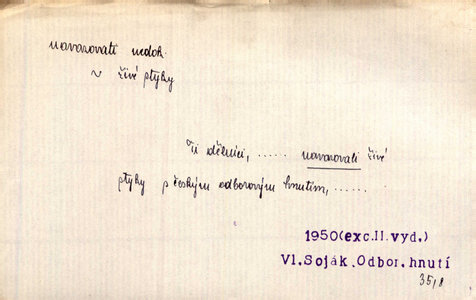 navazovati nedok.
~ živé styky
Ti dělníci, ...... navazovali živé
styky s českým odborovým hnutím, ......
1950(exc.II.vyd.)
Vl.Soják,Odbor.hnutí
35,8